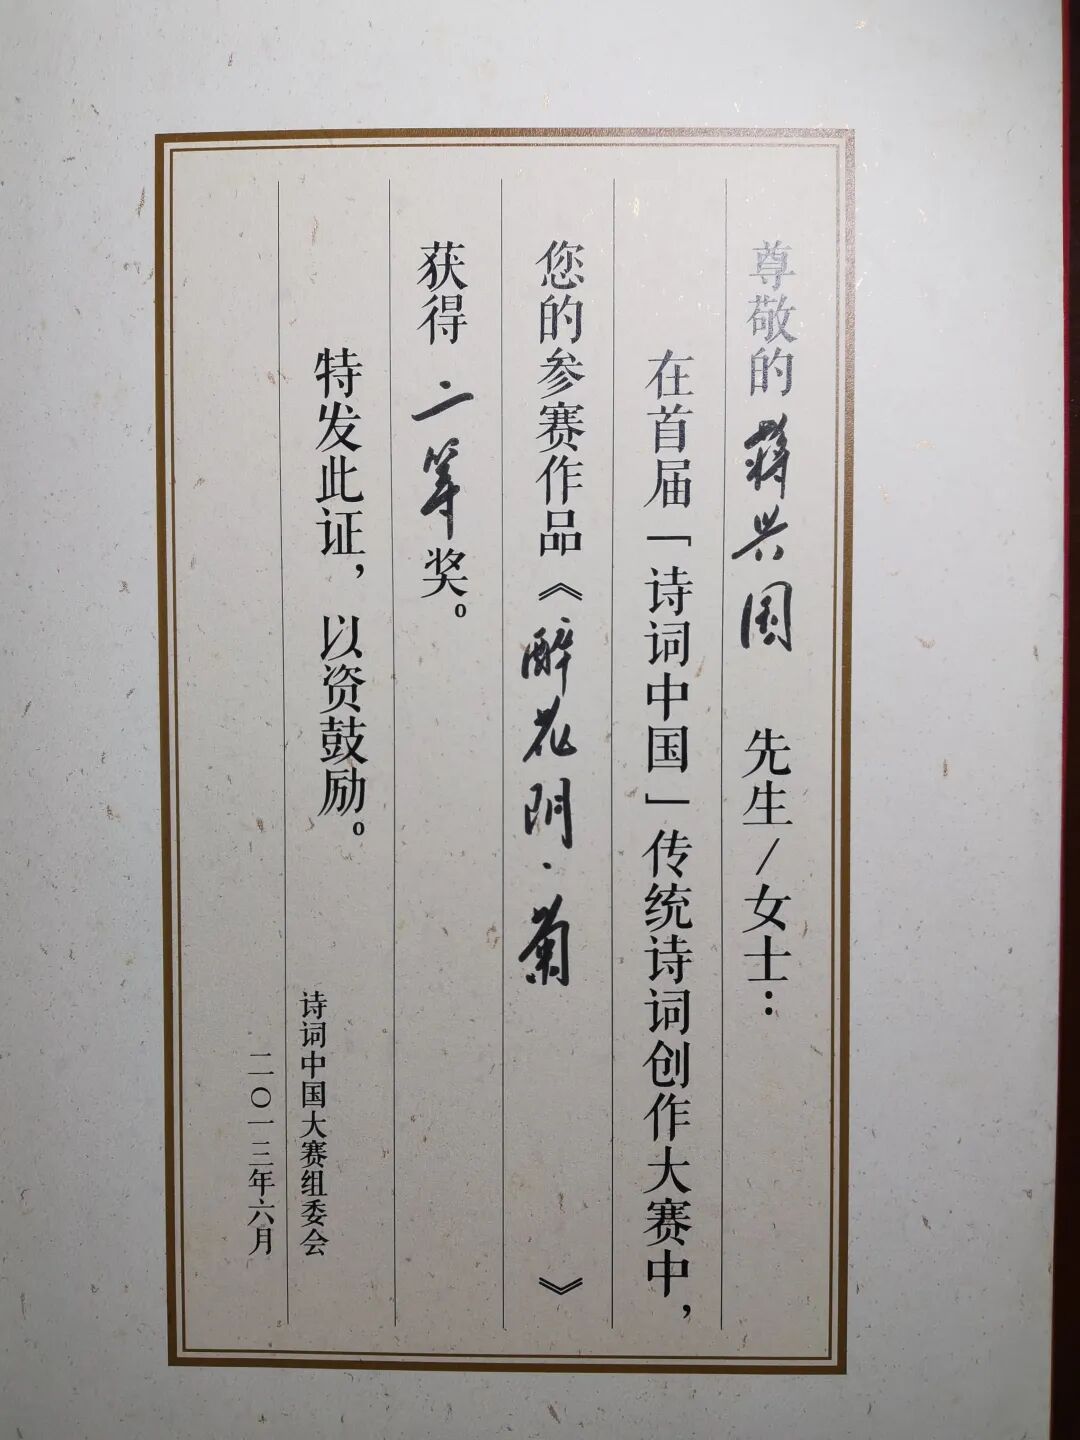 尊敬的蒋兴国 先生/女士：
在首届「诗词中国」传统诗词创作大赛中，
您的参赛作品《醉花阴·菊》
获得二等奖。
特发此证，以资鼓励。
诗词中国大赛组委会
二〇一三年六月